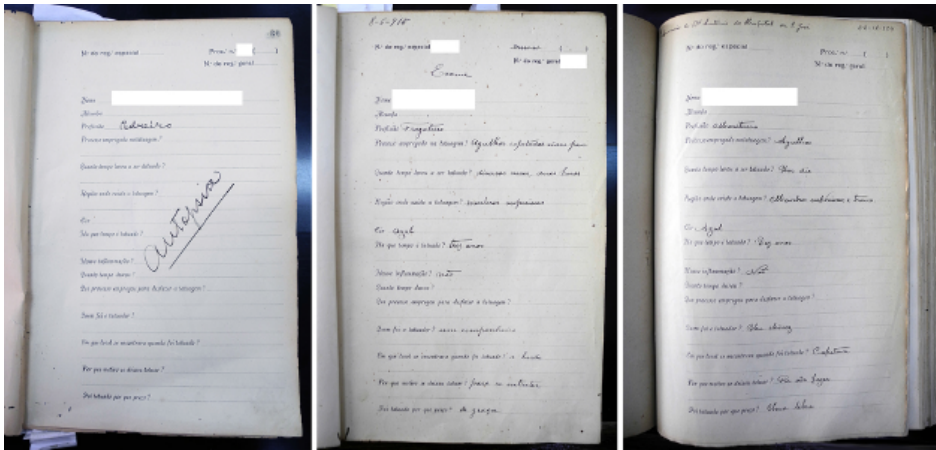 Nº do reg.º especial
Proc. nº ( )
Nº do reg.º geral
Nome
Alcunha
Profissão
Processo empregado na tatuagem?
Quanto tempo levou a ser tatuado?
Região onde existe a tatuagem?
Côr
Ha que tempo é tatuado?
Houve inflammação?
Quanto tempo durou?
Que processo empregou para disfarçar a tatuagem?
Quem foi o tatuador?
Em que local se encontrava quando foi tatuado?
Por que motivo se deixou tatuar?
Foi tatuado por que preço?
autopsia
Nº do reg.º especial
( )
Nº do reg.º geral
Exame
Nome
Alcunha
Profissão Fragateiro
Processo empregado na tatuagem? Agulhas
Quanto tempo levou a ser tatuado?
Região onde existe a tatuagem? membros superiores
Côr azul
Ha que tempo é tatuado? trez anos
Houve inflammação? não
Quanto tempo durou?
Que processo empregou para disfarçar a tatuagem?
Quem foi o tatuador? um companheiro
Em que local se encontrava quando foi tatuado? a bordo
Por que motivo se deixou tatuar?
Foi tatuado por que preço? de graça
Nº do reg.º especial
Proc. nº ( )
Nº do reg.º geral
Nome
Alcunha
Profissão
Processo empregado na tatuagem? Agulhas
Quanto tempo levou a ser tatuado? Um dia
Região onde existe a tatuagem? Membros
Côr Azul
Ha que tempo é tatuado? Dez anos
Houve inflammação? Não
Quanto tempo durou?
Que processo empregou para disfarçar a tatuagem?
Quem foi o tatuador? Um chinez
Em que local se encontrava quando foi tatuado?
Por que motivo se deixou tatuar?
Foi tatuado por que preço? Uma libra